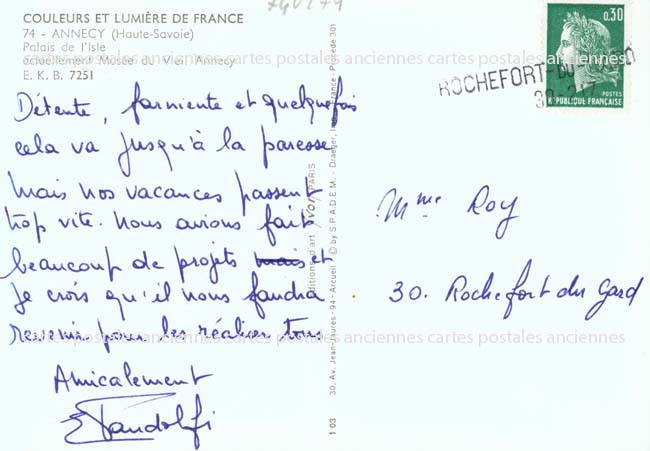 COULEURS ET LUMIÈRE DE FRANCE
74 - ANNECY (Haute-Savoie)
Palais de l'Isle
actuellement Musée du Vieil Annecy
E. K. B. 7251
cartes postales anciennes cartes postales anciennes cartes postales anciennes
Détente, farniente et quelquefois
cela va jusqu'à la paresse
mais nos vacances passent
trop vite. Nous avions fait
beaucoup de projets mais et
je crois qu'il nous faudra
revenir pour les réaliser tous
Amicalement
E Pandolfi
Editions d'art YVON PARIS
30, Av. Jean-Jaurès - 94 - Arcueil © by S.P.A.D.E.M. - Draeger, Imp. France - Procédé 301
1 03
0,30
POSTES
RÉPUBLIQUE FRANÇAISE
ROCHEFORT-DU-GARD
Mme Roy
30. Rochefort du Gard
cartes postales anciennes cartes postales anciennes cartes postales anciennes